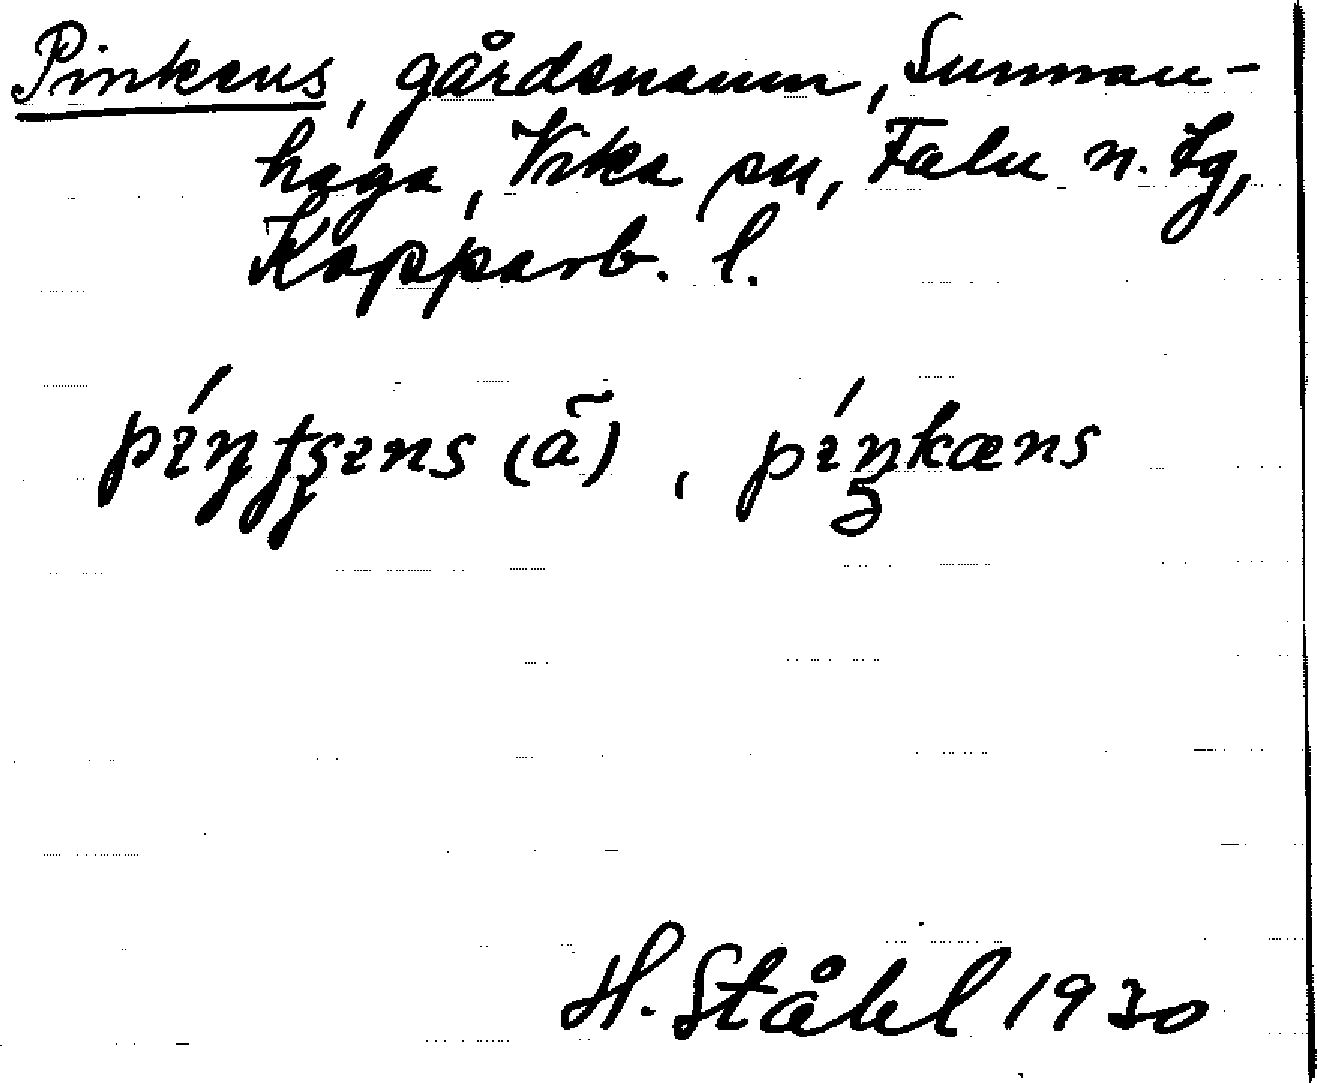 Pinkens, gårdsnamn, Sunnan-
haga, Vika sn, Falu n. lg,
Kopparb. l.
pı́ŋtʂıns (ä̃), pı́ŋkæns
H. Ståhl 1930